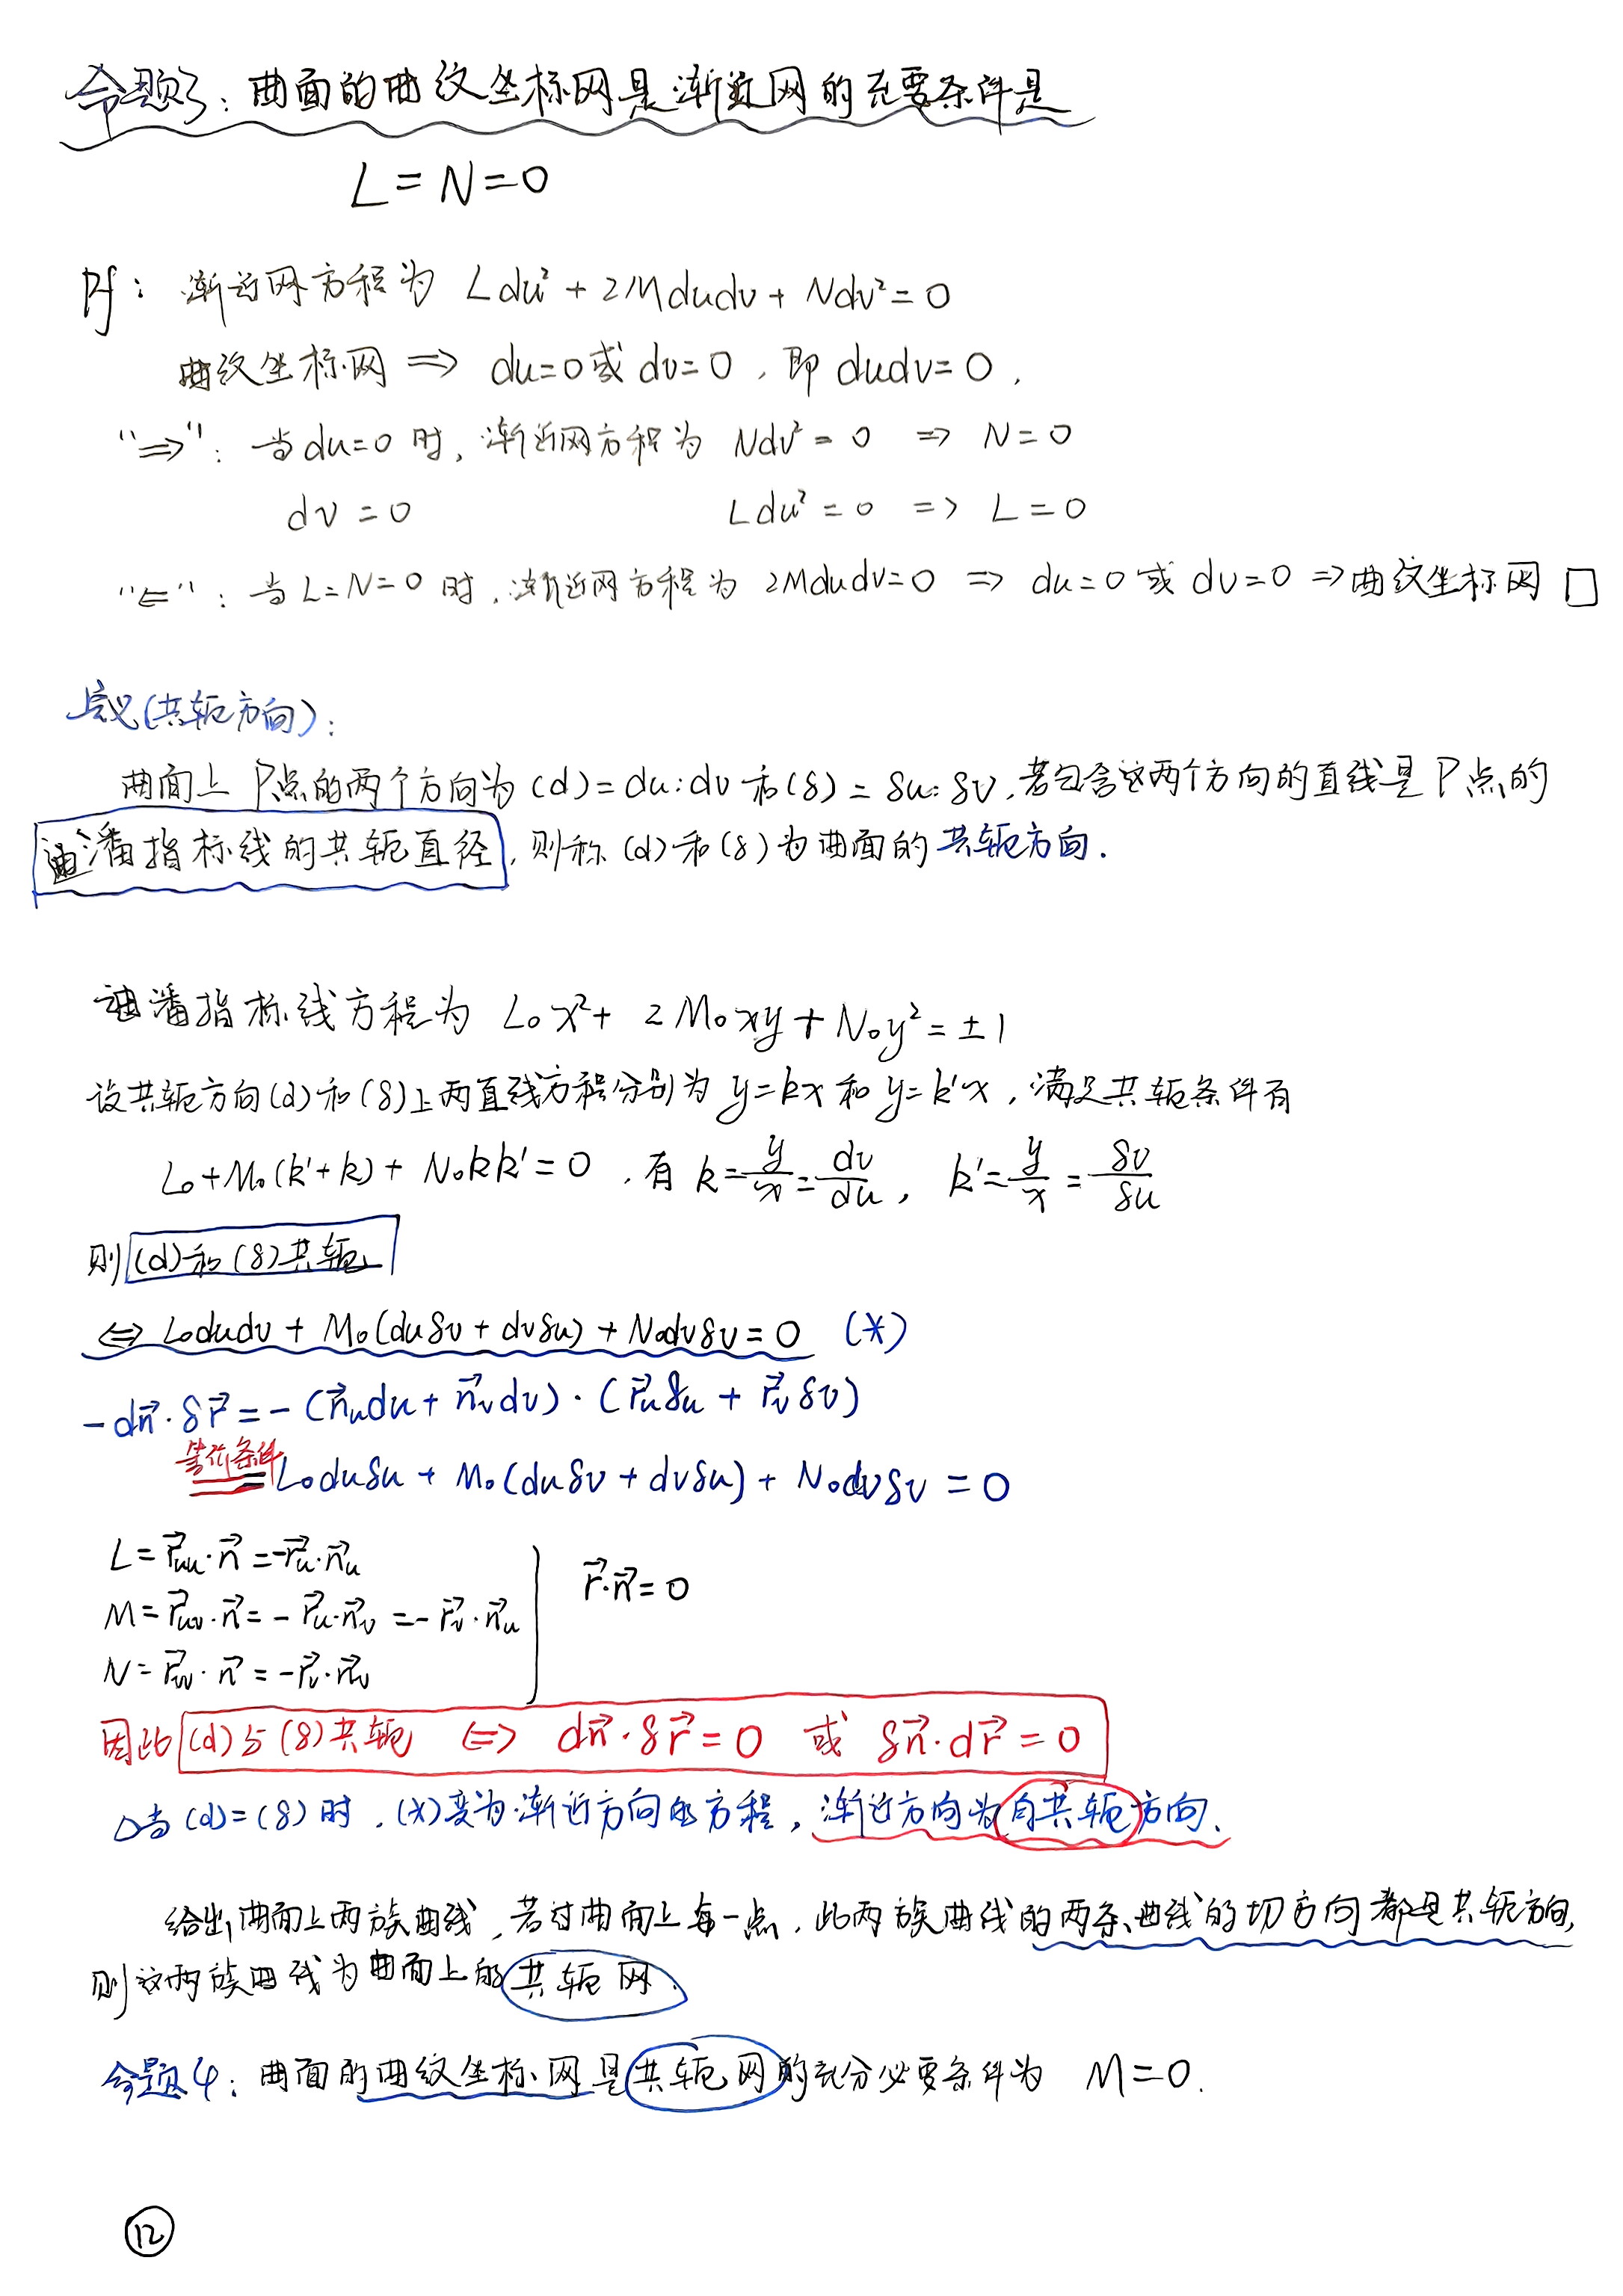 命题3：曲面的曲纹坐标网是渐近网的充要条件是
L = N = 0
Pf： 渐近网方程为 Ldu² + 2Mdudv + Ndv² = 0
曲纹坐标网 ⇒ du=0 或 dv=0，即 dudv=0．
“⇒”：当 du=0 时，渐近网方程为 Ndv² = 0 ⇒ N=0
dv = 0 Ldu² = 0 ⇒ L = 0
“⇐”：当 L=N=0 时，渐近网方程为 2Mdudv=0 ⇒ du=0 或 dv=0 ⇒ 曲纹坐标网 □
定义(共轭方向)：
曲面上 P点的两个方向为 (d) = du:dv 和 (δ) = δu:δv，若包含这两个方向的直线是 P点的
迪潘指标线的共轭直径，则称 (d) 和 (δ) 为曲面的共轭方向．
迪潘指标线方程为 L₀x² + 2M₀xy + N₀y² = ±1
设共轭方向(d)和(δ)上两直线方程分别为 y=kx 和 y=k'x，满足共轭条件有
L₀+M₀(k'+k)+N₀kk'=0，有 k=y/x=dv/du，k'=y/x=δv/δu
则 (d)和(δ)共轭
⇔ L₀dudv + M₀(duδv + dvδu) + N₀dvδv = 0 (*)
-dn⃗·δr⃗ = -(n⃗ᵤdu + n⃗ᵥdv)·(r⃗ᵤδu + r⃗ᵥδv)
等价条件 = L₀duδu + M₀(duδv + dvδu) + N₀dvδv = 0
L = r⃗ᵤᵤ·n⃗ = -r⃗ᵤ·n⃗ᵤ
M = r⃗ᵤᵥ·n⃗ = -r⃗ᵤ·n⃗ᵥ = -r⃗ᵥ·n⃗ᵤ r⃗·n⃗ = 0
N = r⃗ᵥᵥ·n⃗ = -r⃗ᵥ·n⃗ᵥ
因此 (d)与(δ)共轭 ⇔ dn⃗·δr⃗ = 0 或 δn⃗·dr⃗ = 0
△当 (d)=(δ) 时，(*)变为渐近方向的方程，渐近方向为自共轭方向．
给出曲面上两族曲线，若过曲面上每一点，此两族曲线的两条曲线的切方向都是共轭方向，
则这两族曲线为曲面上的共轭网．
命题4：曲面的曲纹坐标网是共轭网的充分必要条件为 M=0．
⑫